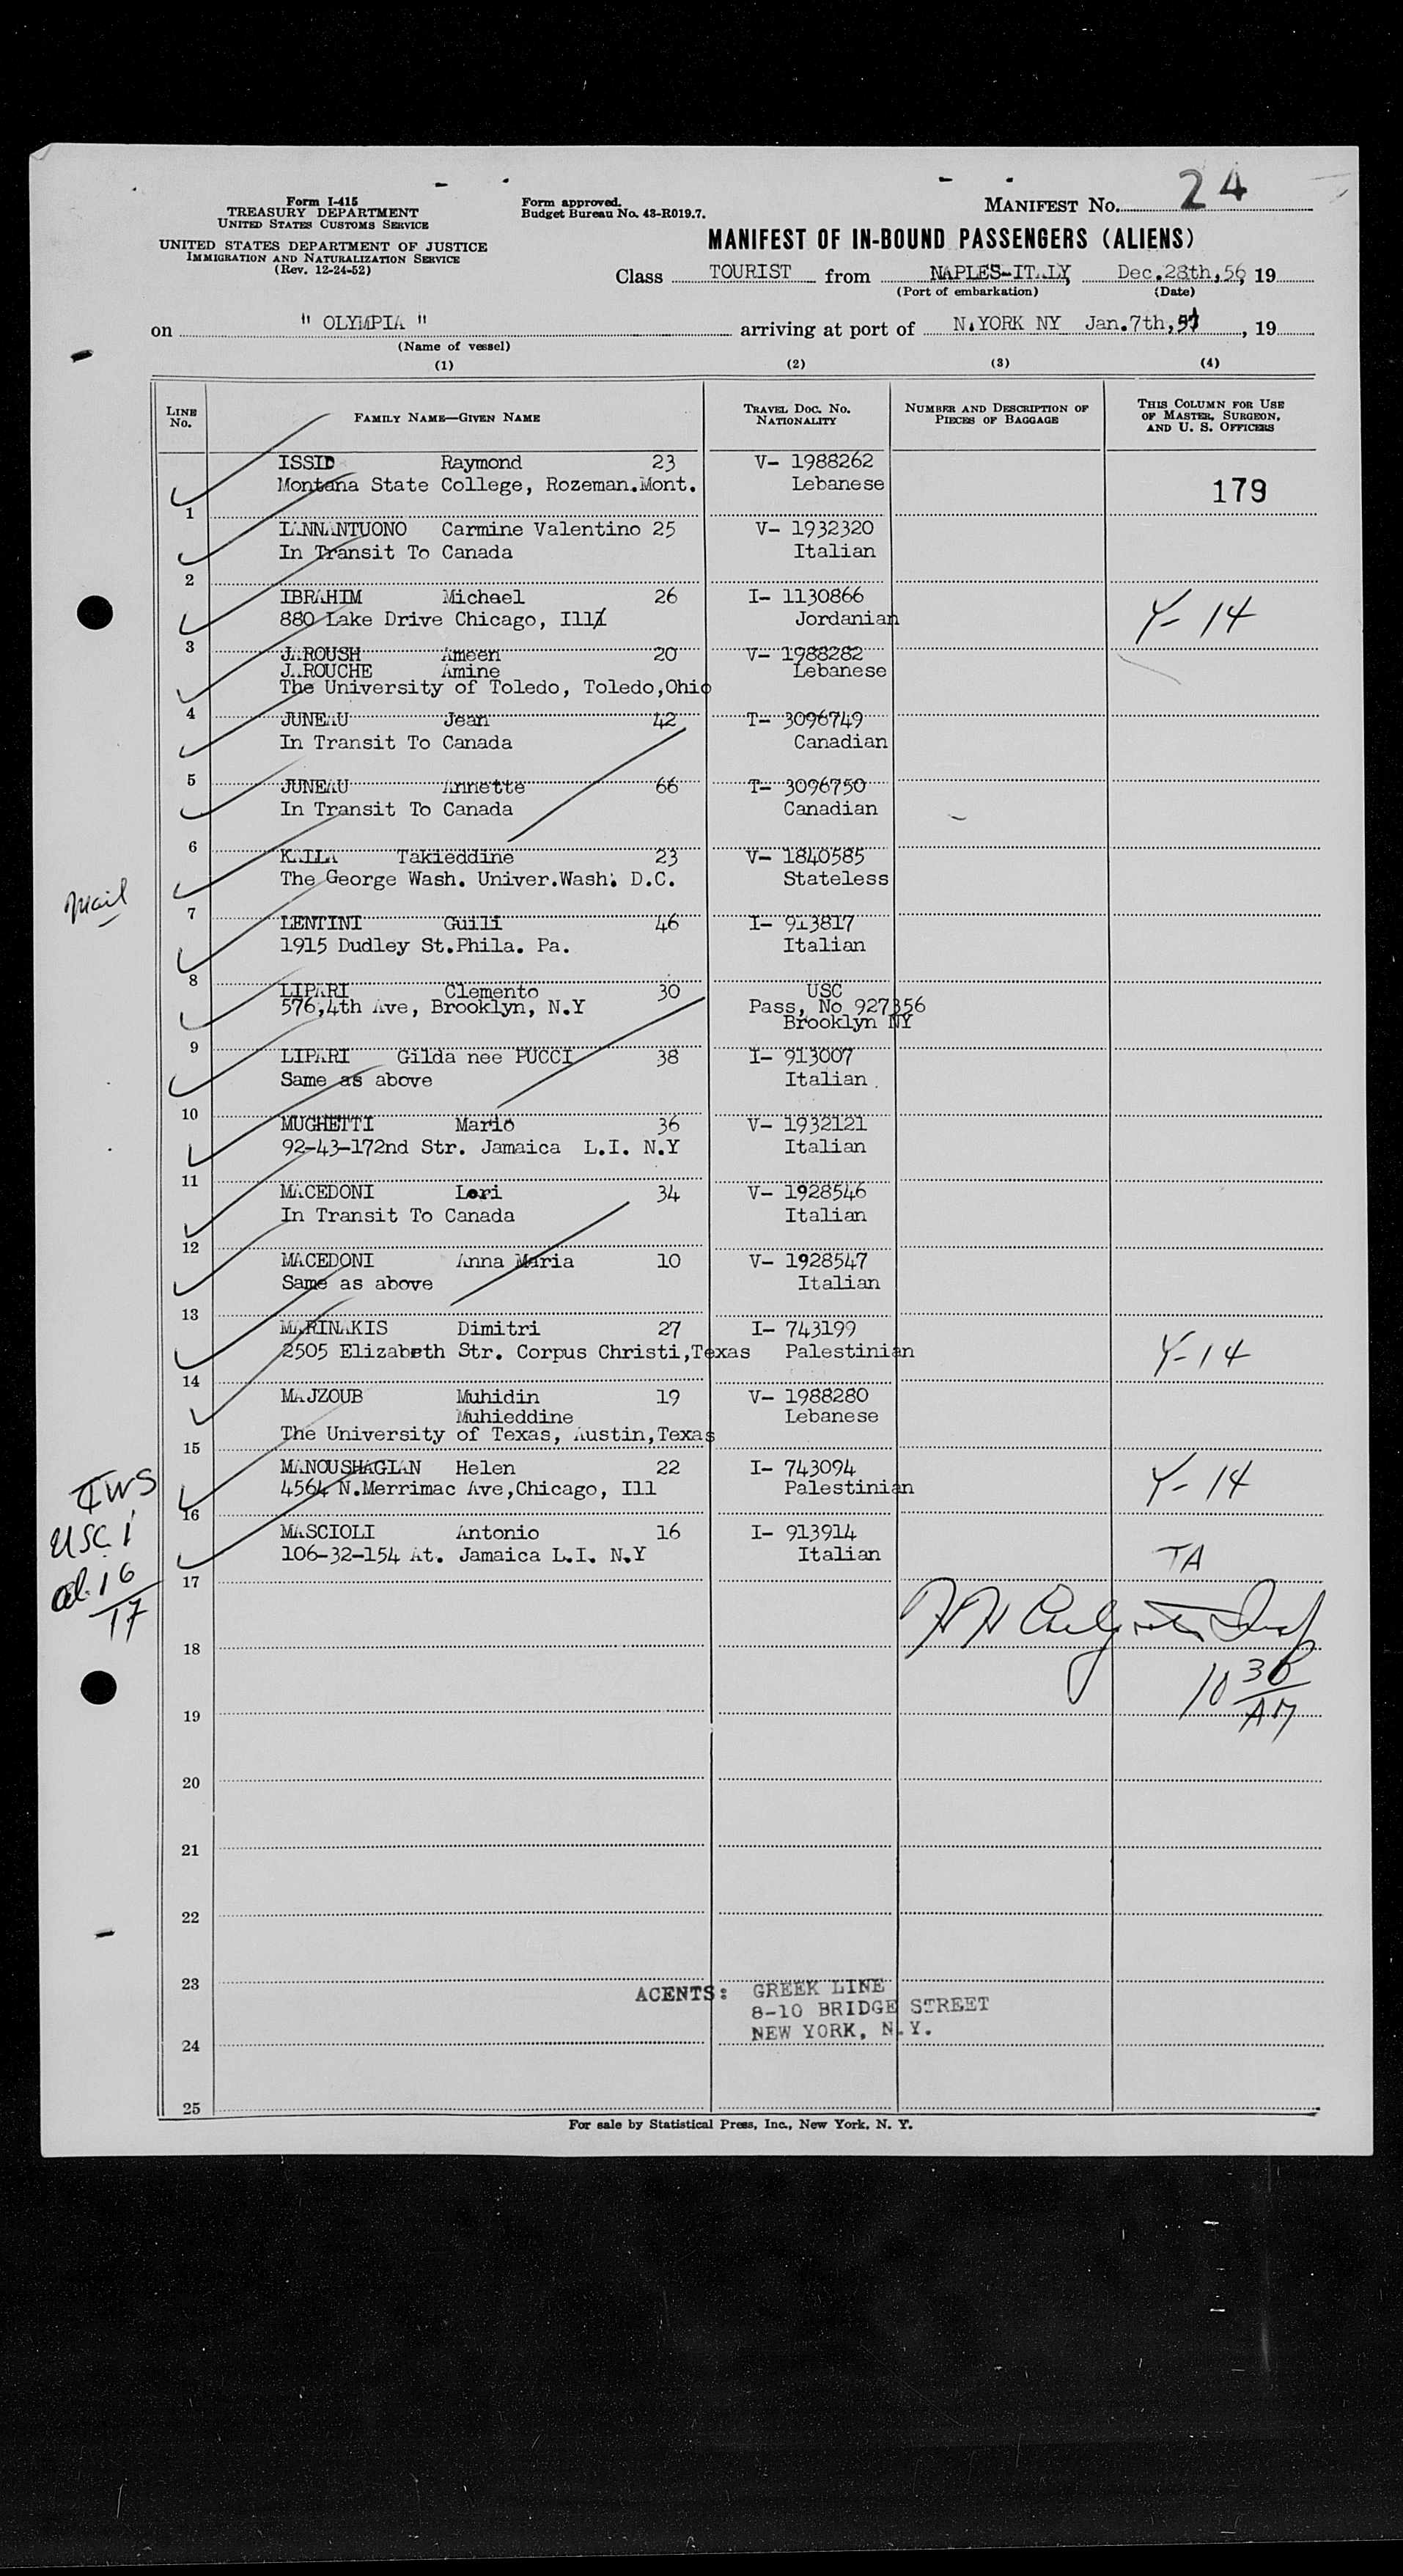 Form I-415
TREASURY DEPARTMENT
UNITED STATES CUSTOMS SERVICE
UNITED STATES DEPARTMENT OF JUSTICE
IMMIGRATION AND NATURALIZATION SERVICE
(Rev. 12-24-52)
Form approved.
Budget Bureau No. 43-R019.7.
MANIFEST No. 24
MANIFEST OF IN-BOUND PASSENGERS (ALIENS)
Class TOURIST from NAPLES-ITALY, Dec.28th,56, 19
(Port of embarkation) (Date)
on " OLYMPIA " arriving at port of N.YORK NY Jan.7th,57, 19
(Name of vessel)
(1) (2) (3) (4)
LINE No. FAMILY NAME—GIVEN NAME TRAVEL DOC. No. NATIONALITY NUMBER AND DESCRIPTION OF PIECES OF BAGGAGE THIS COLUMN FOR USE OF MASTER, SURGEON, AND U. S. OFFICERS
ISSID Raymond 23 V- 1988262
Montana State College, Rozeman.Mont. Lebanese 179
1
IANNANTUONO Carmine Valentino 25 V- 1932320
In Transit To Canada Italian
2
IBRAHIM Michael 26 I- 1130866
880 Lake Drive Chicago, Ill Jordanian Y- 14
3
JAROUSH Ameen 20 V- 1988282
JAROUCHE Amine Lebanese
The University of Toledo, Toledo,Ohio
4
JUNEAU Jean 42 T- 3096749
In Transit To Canada Canadian
5
JUNEAU Annette 66 T- 3096750
In Transit To Canada Canadian
6
KAILA Takieddine 23 V- 1840585
The George Wash. Univer.Wash. D.C. Stateless
mail
7
LENTINI Guili 46 I- 913817
1915 Dudley St.Phila. Pa. Italian
8
LIPARI Clemento 30 USC
576,4th Ave, Brooklyn, N.Y Pass, No 927356
Brooklyn NY
9
LIPARI Gilda nee PUCCI 38 I- 913007
Same as above Italian
10
MUGHETTI Mario 36 V- 1932121
92-43-172nd Str. Jamaica L.I. N.Y Italian
11
MACEDONI Lori 34 V- 1928546
In Transit To Canada Italian
12
MACEDONI Anna Maria 10 V- 1928547
Same as above Italian
13
MARINAKIS Dimitri 27 I- 743199
2505 Elizabeth Str. Corpus Christi,Texas Palestinian Y-14
14
MAJZOUB Muhidin 19 V- 1988280
Muhieddine Lebanese
The University of Texas, Austin,Texas
15
MANOUSHAGIAN Helen 22 I- 743094
4564 N.Merrimac Ave,Chicago, Ill Palestinian Y- 14
16
USC 1
MASCIOLI Antonio 16 I- 913914
106-32-154 At. Jamaica L.I. N.Y Italian TA
al. 16
17
17
18
10 30 AM
19
20
21
22
23
AGENTS: GREEK LINE
8-10 BRIDGE STREET
NEW YORK, N.Y.
24
25
For sale by Statistical Press, Inc., New York, N. Y.